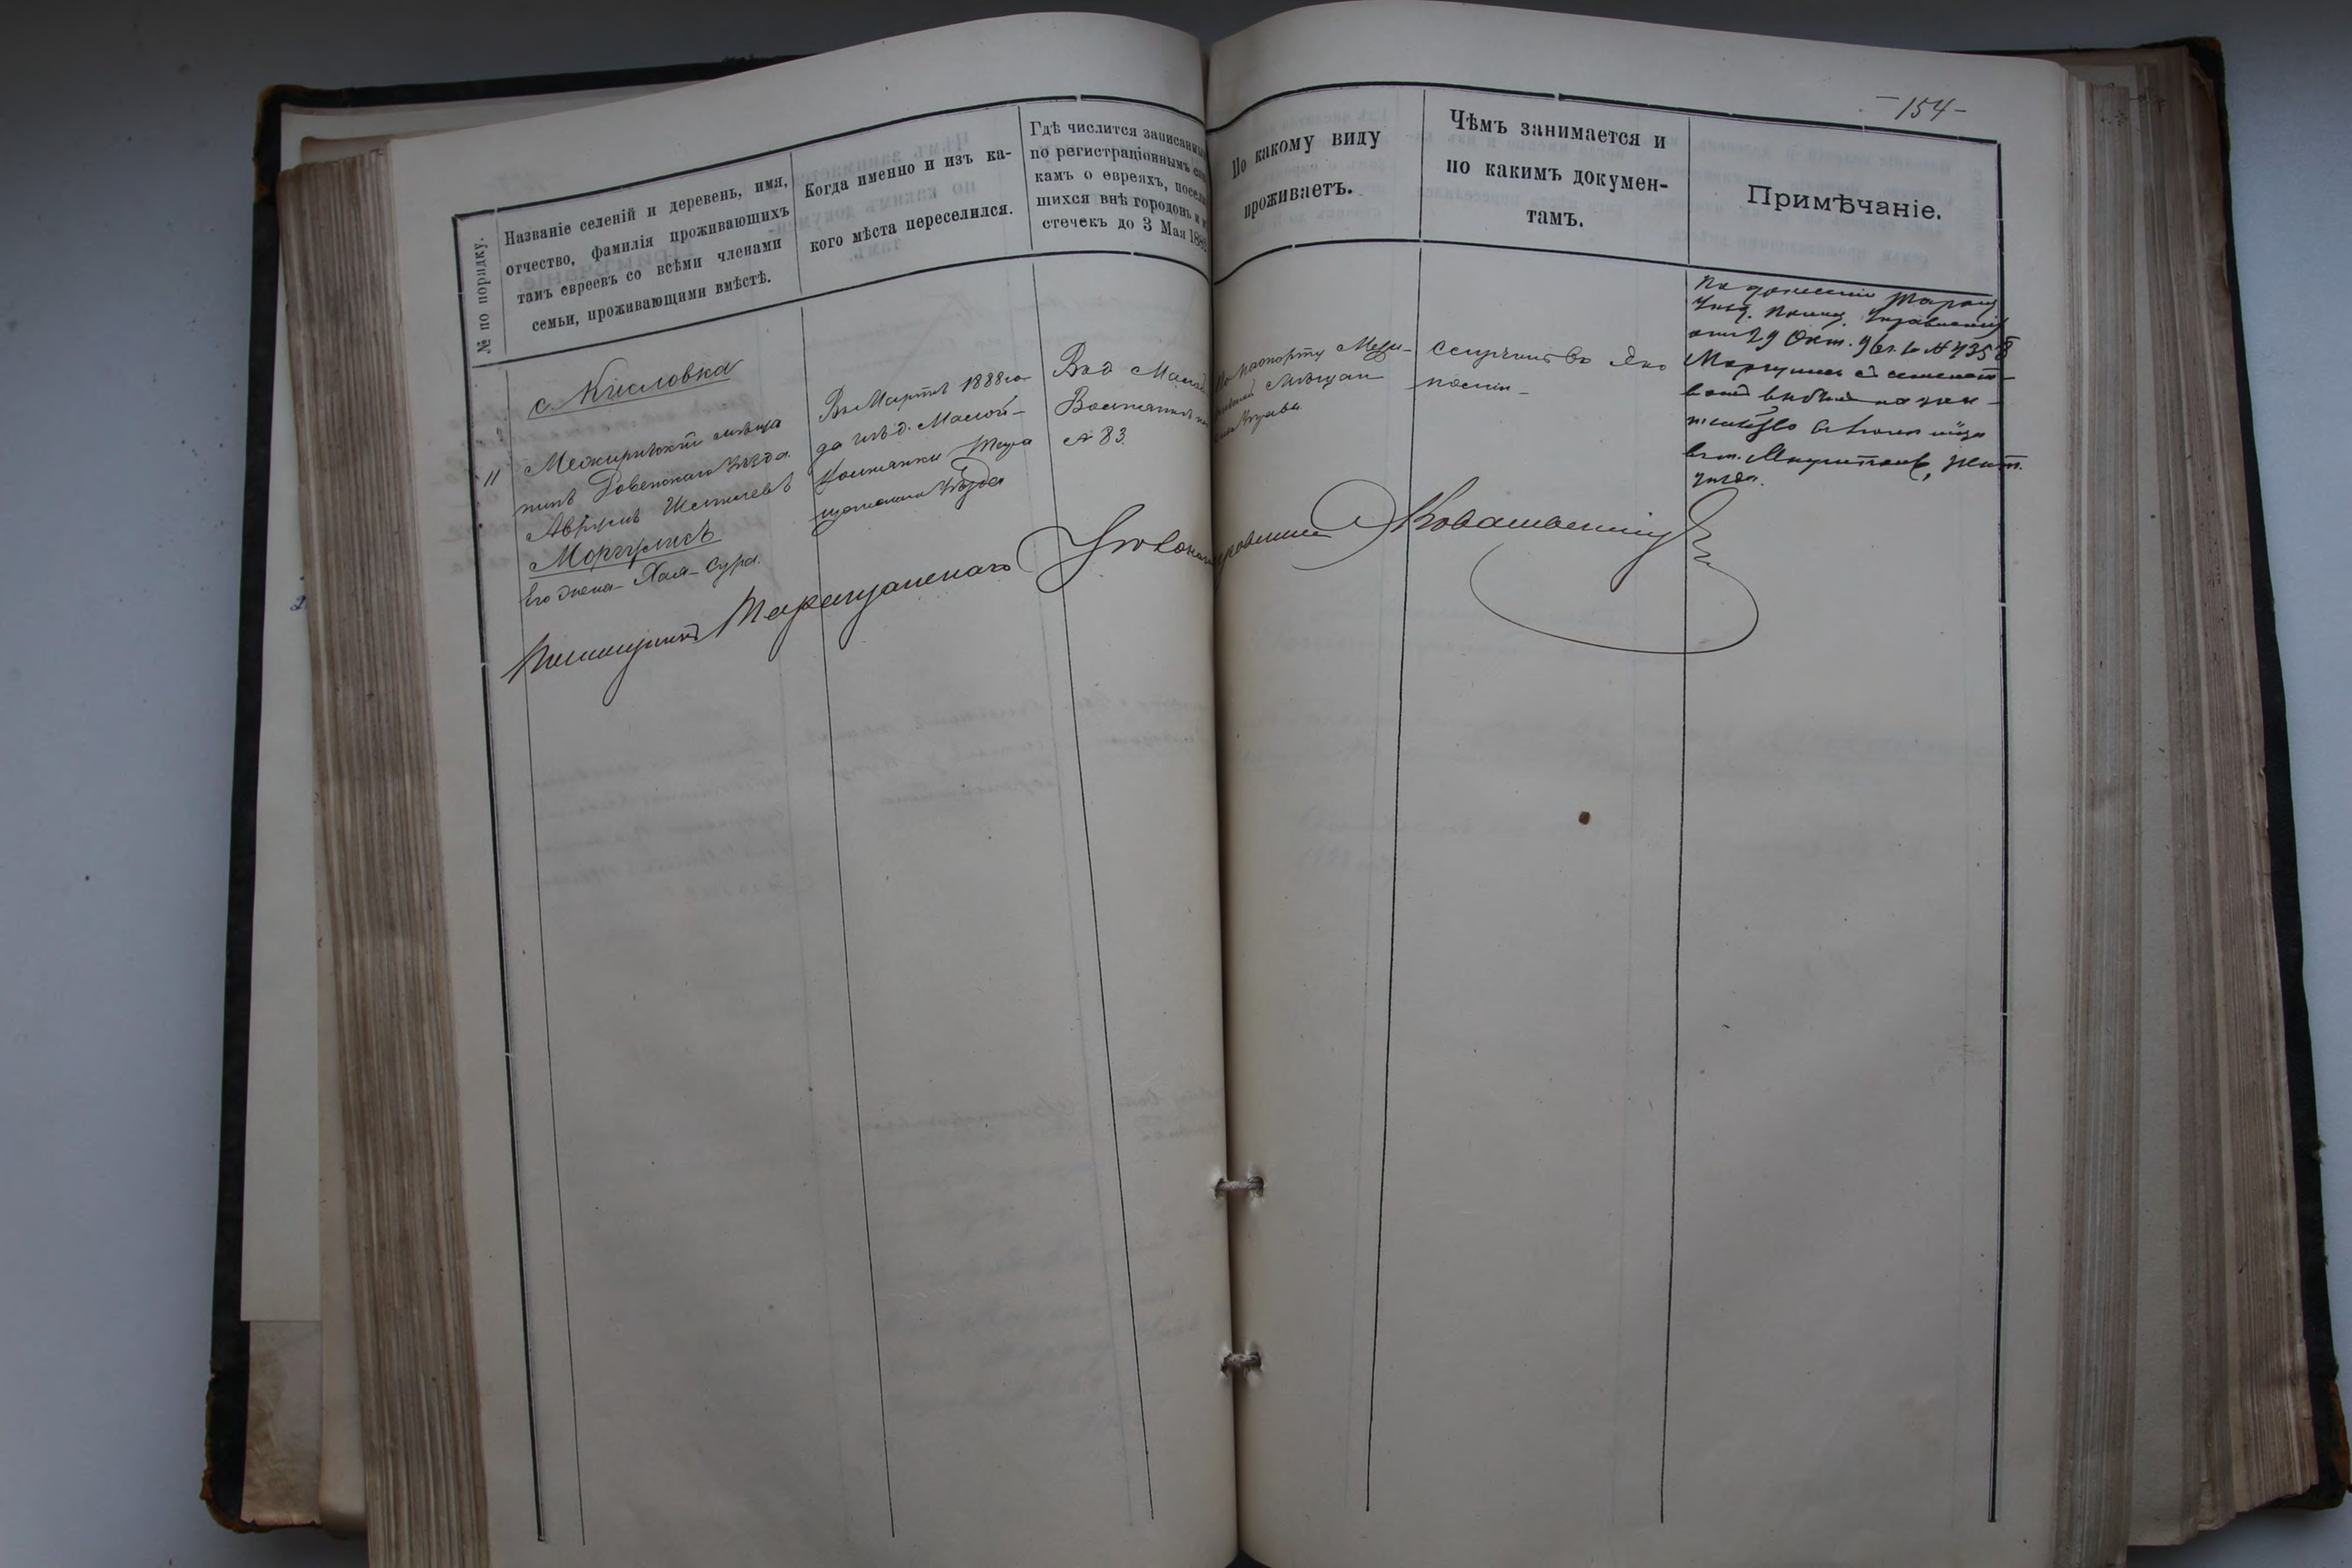 -154-
№ по порядку.
Названіе селеній и деревень, имя,
отчество, фамилія проживающихъ
тамъ евреевъ со всѣми членами
семьи, проживающими вмѣстѣ.
Когда именно и изъ ка-
кого мѣста переселился.
Гдѣ числится записаннымъ
по регистраціоннымъ
камъ о евреяхъ, посели
шихся внѣ городовъ и м
стечекъ до 3 Мая 1882
По какому виду
проживаетъ.
Чѣмъ занимается и
по какимъ докумен-
тамъ.
Примѣчаніе.
с. Кисловка
11 Межирѣчскій мѣща
нинъ Ровенскаго Уѣзда
Аврумъ Шмилевъ
Моргулисъ
Его жена Хая-Сура.
Въ Мартѣ 1888 го
да изъ д. Малой-
Вольнянки Тара
щанскаго Уѣзда
Въ д. Малой
Вольнянкѣ
№ 83.
По паспорту Межи-
Мѣщан
Управы
Служитъ въ Эко
номіи
По донесенію Таращ
Уѣзд. Полиц. Управленія
отъ 29 Окт. 96 г. за № 4358
Моргулисъ съ семейст-
вомъ выбылъ на жи-
тельство
въ м.
уѣзда.
Помощникъ Таращанскаго Уѣзднаго